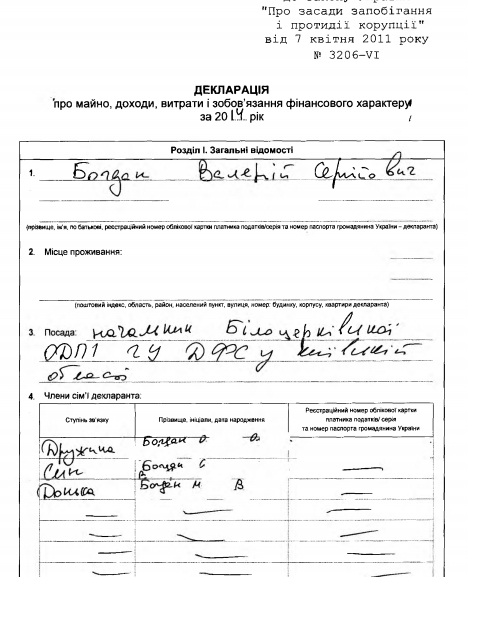 "Про засади запобігання
і протидії корупції"
від 7 квітня 2011 року
№ 3206-VI
ДЕКЛАРАЦІЯ
про майно, доходи, витрати і зобов'язання фінансового характеру
за 2014 рік
Розділ I. Загальні відомості
1. Богдан Валерій Сергійович
(прізвище, ім'я, по батькові, реєстраційний номер облікової картки платника податків/серія та номер паспорта громадянина України – декларанта)
2. Місце проживання:
(поштовий індекс, область, район, населений пункт, вулиця, номер: будинку, корпусу, квартири декларанта)
3. Посада: начальник Білоцерківської
ОДПІ ГУ ДФС у Київській
області
4. Члени сім'ї декларанта:
Ступінь зв'язку
Прізвище, ініціали, дата народження
Реєстраційний номер облікової картки
платника податків/ серія
та номер паспорта громадянина України
Дружина Богдан О О.
Син Богдан Є В
Донька Богдан М В